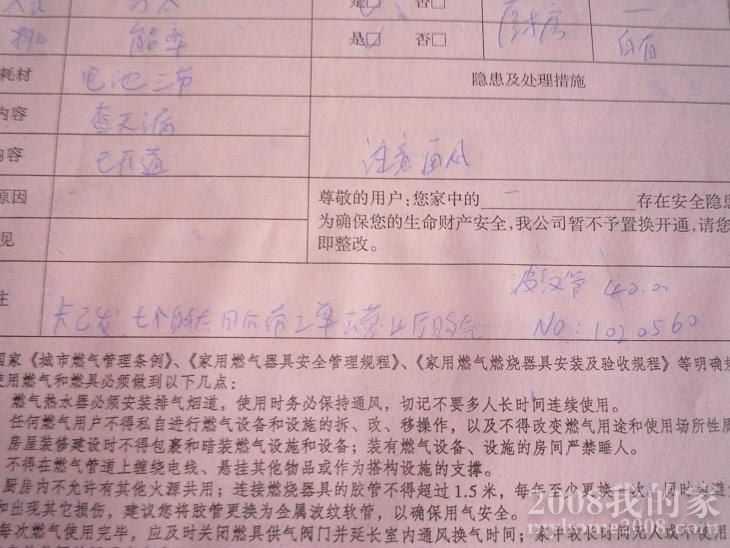 是□ 否□
是□ 否□ 自有
耗材 电池二节 隐患及处理措施
内容 查无漏
内容 已开通 注意通风
原因 尊敬的用户:您家中的 一 存在安全隐患
为确保您的生命财产安全,我公司暂不予置换开通,请您
见 即整改。
波纹管 40.0
注 卡已发 NO:1020560
国家《城市燃气管理条例》、《家用燃气器具安全管理规程》、《家用燃气燃烧器具安装及验收规程》等明确规
使用燃气和燃具必须做到以下几点:
燃气热水器必须安装排气烟道,使用时务必保持通风,切记不要多人长时间连续使用。
任何燃气用户不得私自进行燃气设备和设施的拆、改、移操作,以及不得改变燃气用途和使用场所性质
房屋装修建设时不得包裹和暗装燃气设施和设备;装有燃气设备、设施的房间严禁睡人。
不得在燃气管道上缠绕电线、悬挂其他物品或作为搭构设施的支撑。
厨房内不允许有其他火源共用;连接燃烧器具的胶管不得超过1.5米,每年至少更换一次,同时为避
和出现其它损伤,建议您将胶管更换为金属波纹软管,以确保用气安全。
每次燃气使用完毕,应及时关闭燃具供气阀门并延长室内通风换气时间;家中较长时间无人或不使用
2008我的家
myhome2008.com